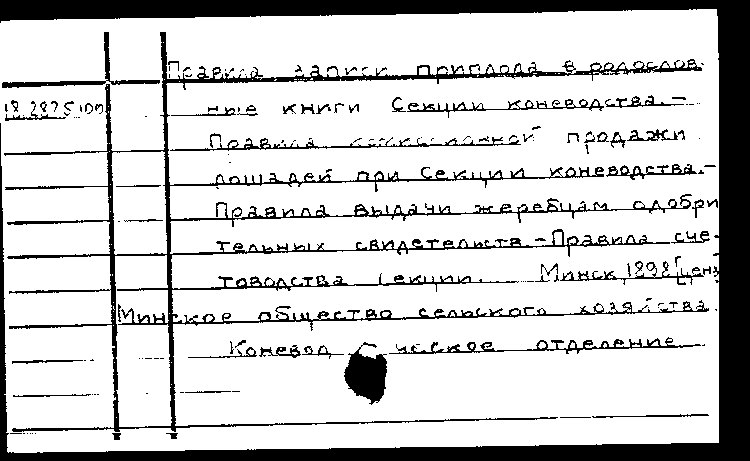 Правила записи приплода в родослов-
18.287.5.100 ные книги Секции коневодства.-
Правила комиссионной продажи
лошадей при Секции коневодства.-
Правила выдачи жеребцам одобри
тельных свидетельств.-Правила сче-
товодства Секции. Минск, 1898 [ценз
Минское общество сельского хозяйства.
Коневод ческое отделение